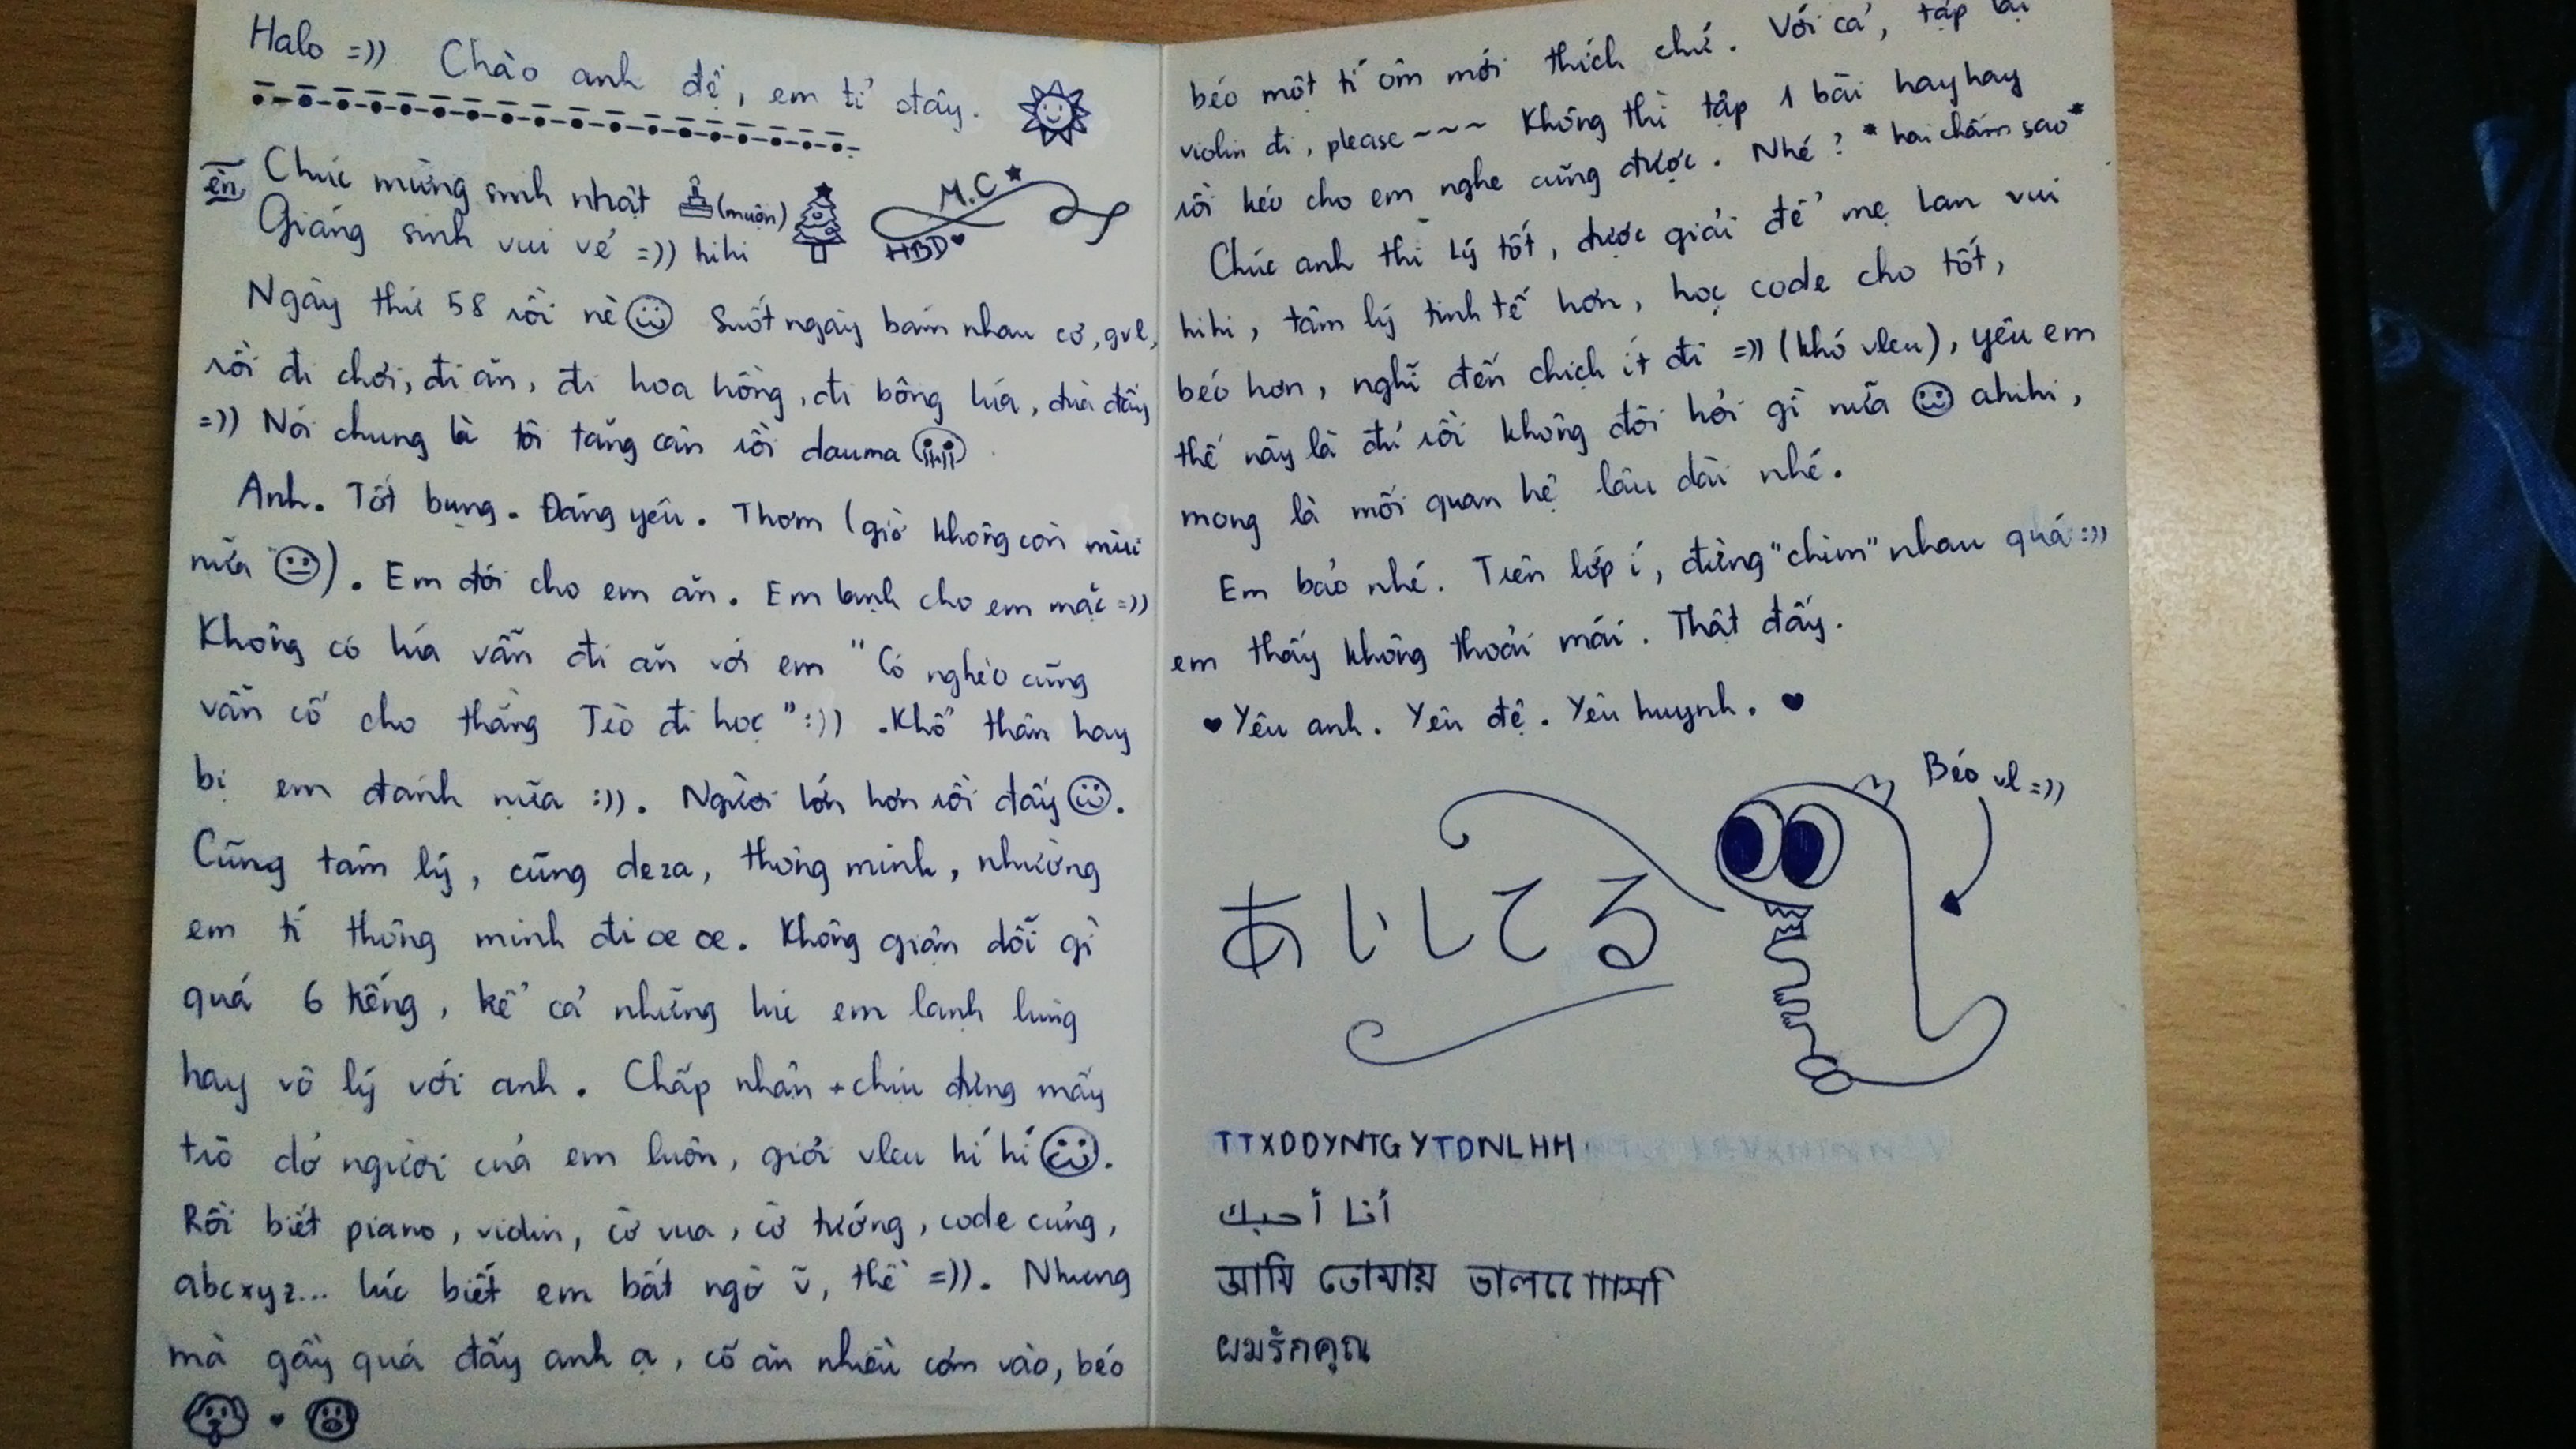 Halo =)) Chào anh đệ, em tỉ đây.
Chúc mừng sinh nhật (muộn)
Giáng sinh vui vẻ =)) hihi
M.C
HBD
Ngày thứ 58 rồi nè Suốt ngày bám nhau cơ, qvl,
rồi đi chơi, đi ăn, đi hoa hồng, đi bông lúa, đủ đây
=)) Nói chung là tôi tăng cân rồi dauma
Anh. Tốt bụng. Đáng yêu. Thơm (giờ không còn mùi
nữa ). Em đói cho em ăn. Em lạnh cho em mặc =))
Không có lúa vẫn đi ăn với em "Có nghèo cũng
vẫn cố cho thằng Tèo đi học" :)) . Khổ thân hay
bị em đánh nữa :)). Người lớn hơn rồi đấy .
Cũng tâm lý, cũng deza, thông minh, nhường
em tí thông minh đi œ œ. Không giận dỗi gì
quá 6 tiếng, kể cả những lúc em lạnh lùng
hay vô lý với anh. Chấp nhận + chịu đựng mấy
trò dở người của em luôn, giỏi vleu hí hí .
Rồi biết piano, violin, cờ vua, cờ tướng, code cứng,
abcxyz... lúc biết em bất ngờ v~, thề =)). Nhưng
mà gầy quá đấy anh ạ, cố ăn nhiều cơm vào, béo
béo một tí ôm mới thích chứ. Với cả, tập lại
violin đi, please~~~ Không thì tập 1 bài hay hay
rồi kéo cho em nghe cũng được. Nhé? *hai chấm sao*
Chúc anh thi lý tốt, được giải để mẹ han vui
hihi, tâm lý tinh tế hơn, học code cho tốt,
béo hơn, nghĩ đến chịch ít đi =)) (khó vleu), yêu em
thế này là đủ rồi không đòi hỏi gì nữa ahihi,
mong là mối quan hệ lâu dài nhé.
Em bảo nhé. Trên lớp í, đừng "chim" nhau quá :))
em thấy không thoải mái. Thật đấy.
♥ Yêu anh. Yêu đệ. Yêu huynh. ♥
あいしてる
Béo vl =))
TTXDDYNTGYTDNLHH
أنا أحبك
আমি তোমায় ভালবাসি
ผมรักคุณ